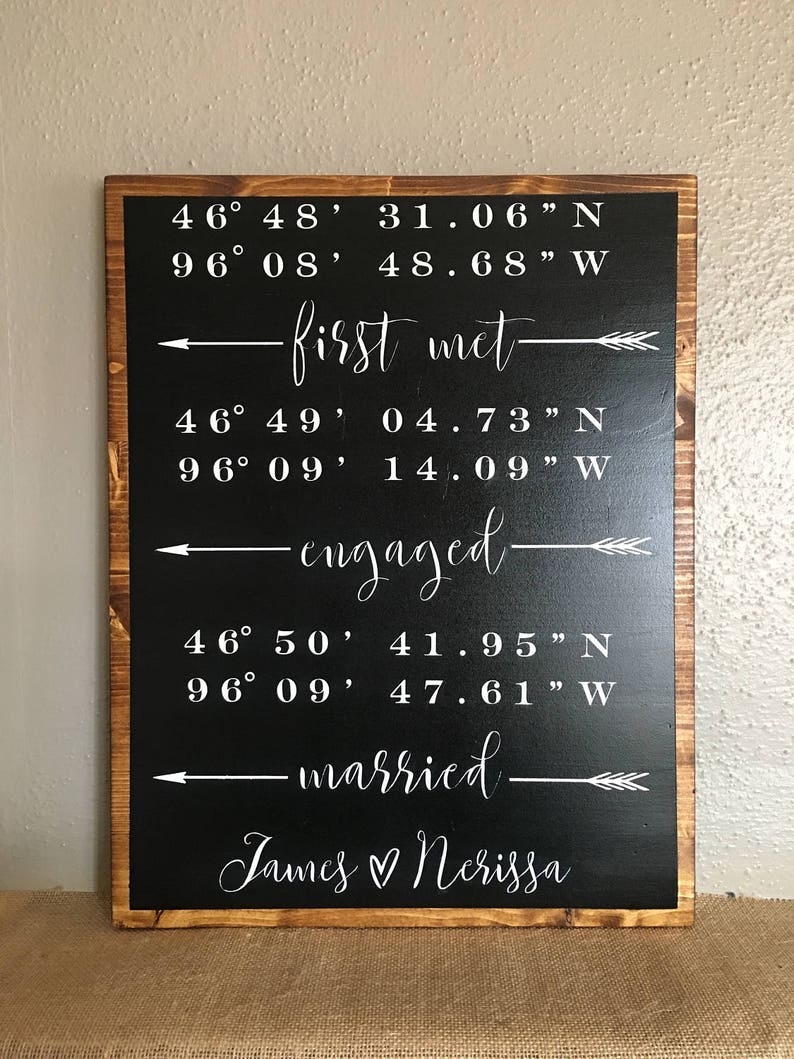 46° 48’ 31.06”N
96° 08’ 48.68”W
first met
46° 49’ 04.73”N
96° 09’ 14.09”W
engaged
46° 50’ 41.95”N
96° 09’ 47.61”W
married
James ♡ Nerissa